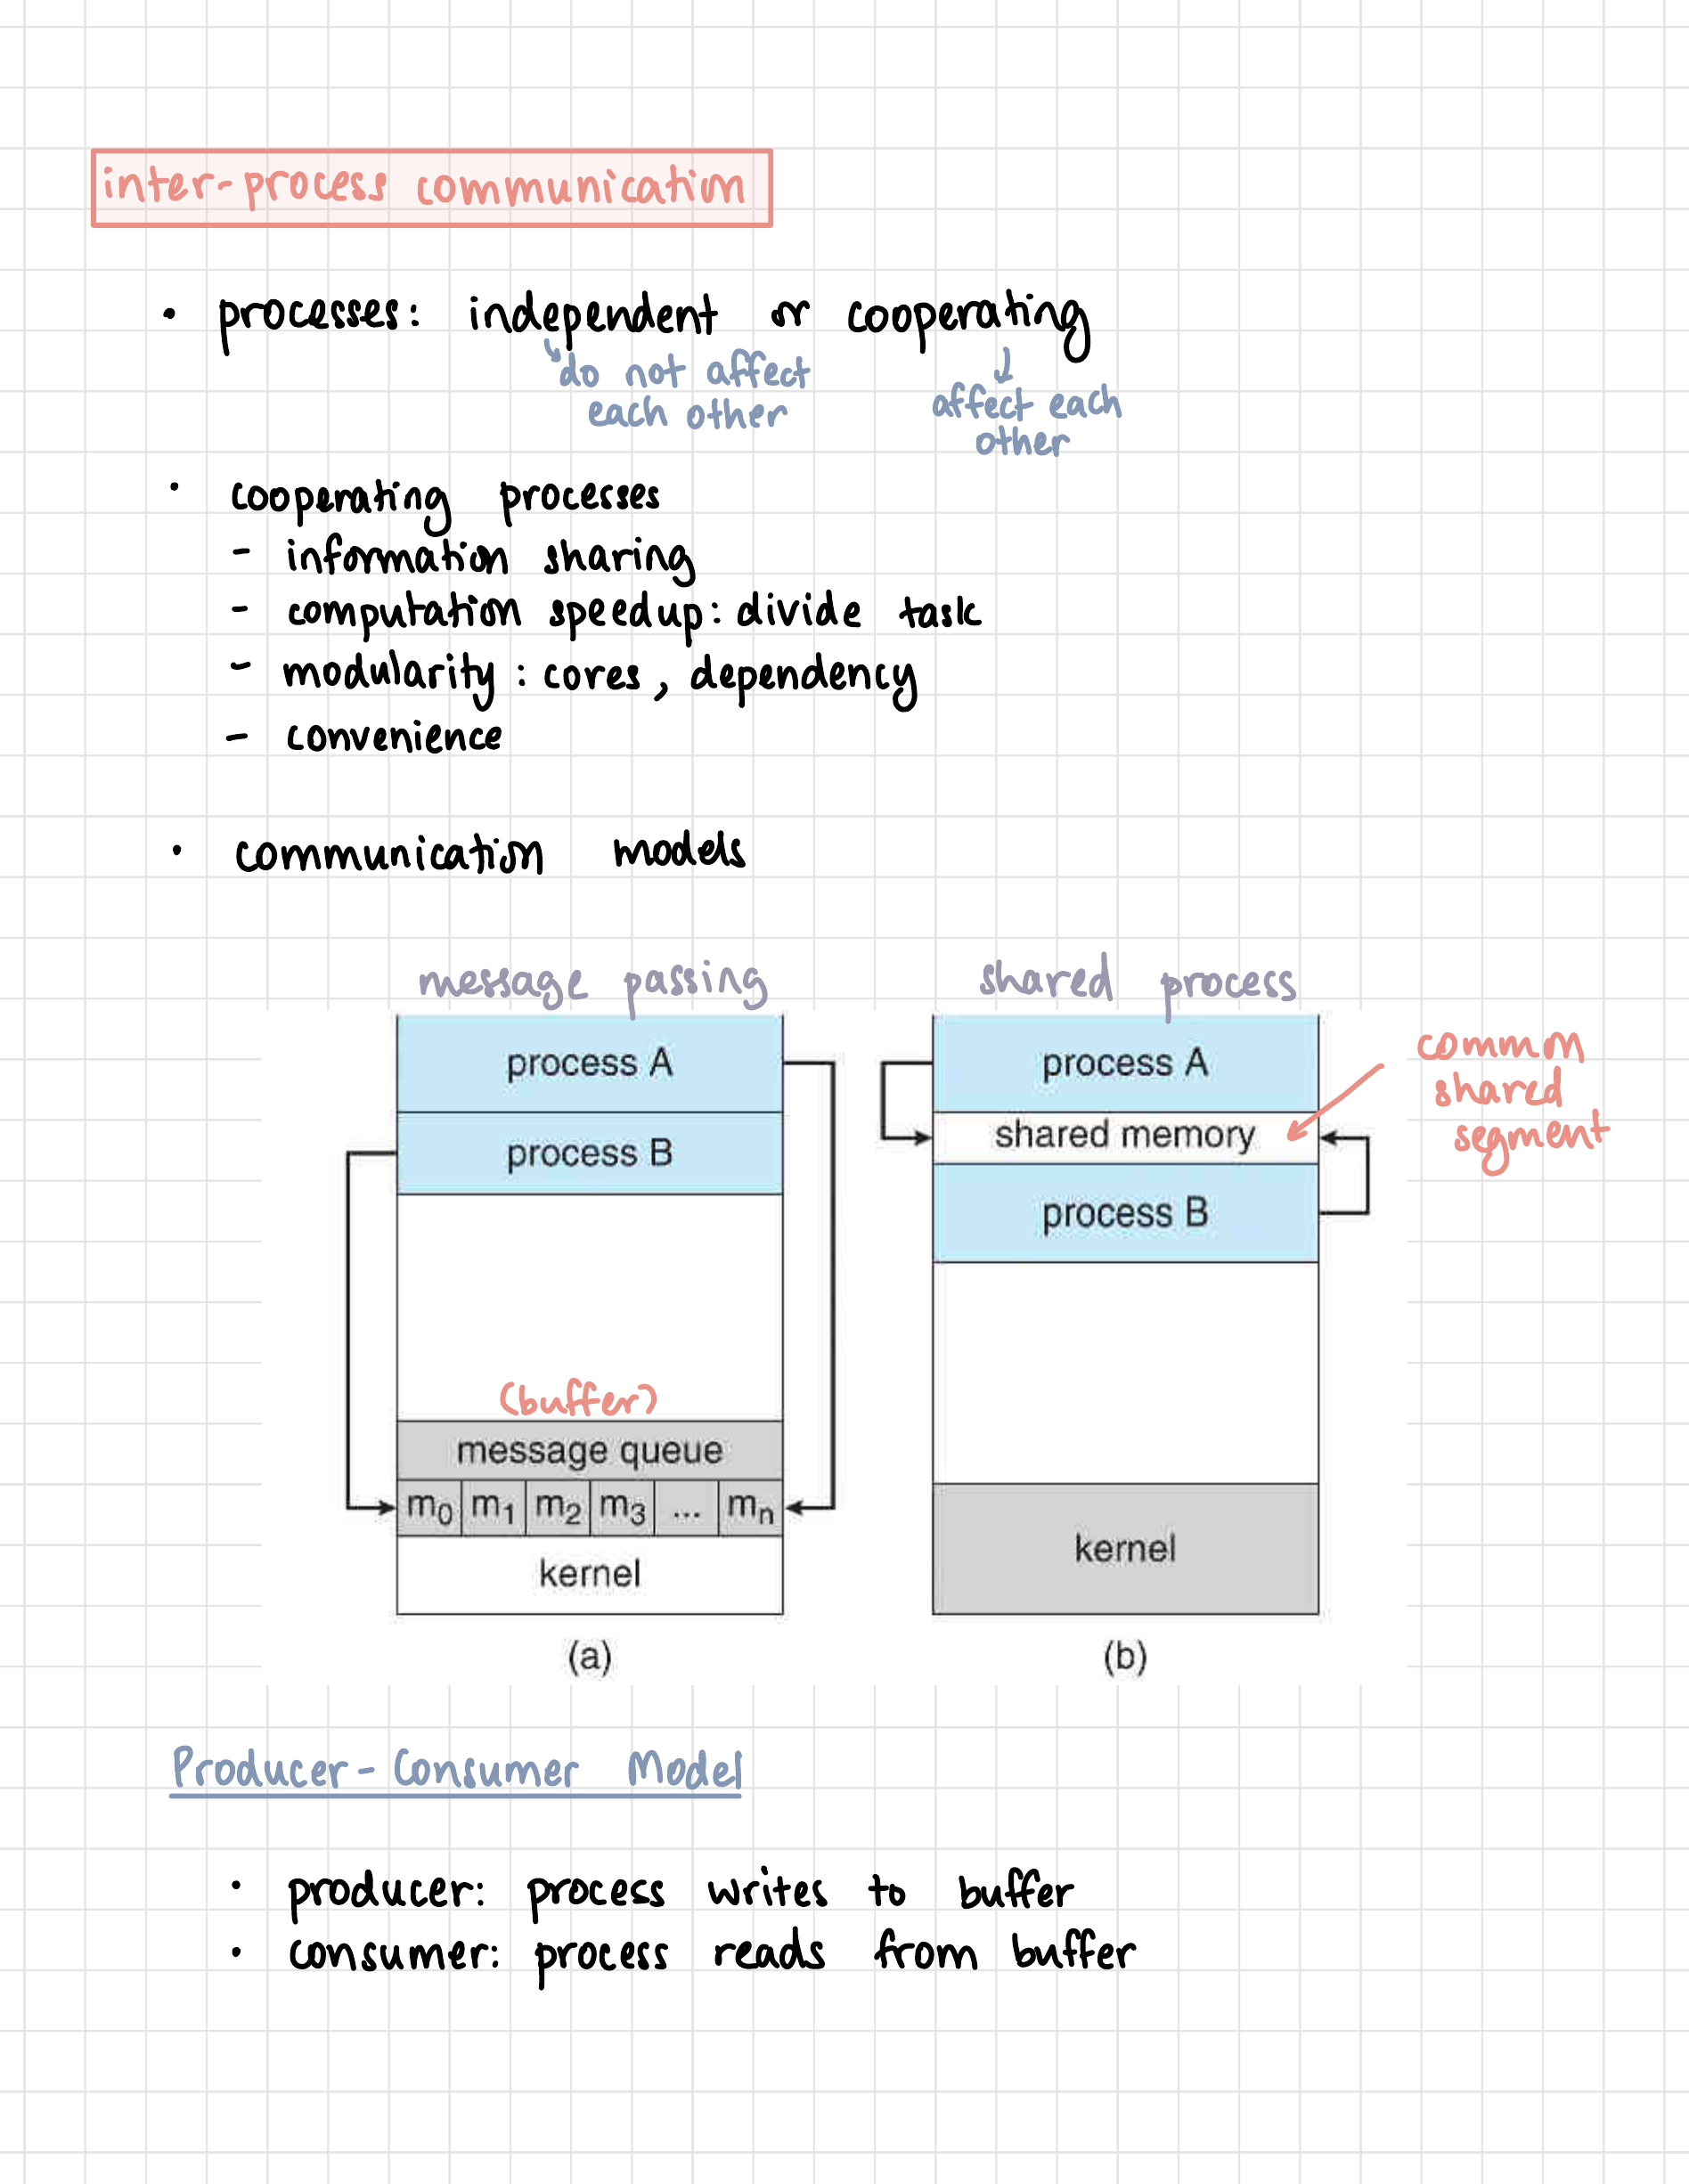 inter-process communication
• processes: independent or cooperating
do not affect
each other
affect each
other
• cooperating processes
- information sharing
- computation speedup: divide task
- modularity: cores, dependency
- convenience
• communication models
message passing
process A
process B
(buffer)
message queue
m0 m1 m2 m3 ... mn
kernel
(a)
shared process
process A
shared memory
process B
kernel
(b)
common
shared
segment
Producer-Consumer Model
• producer: process writes to buffer
• consumer: process reads from buffer